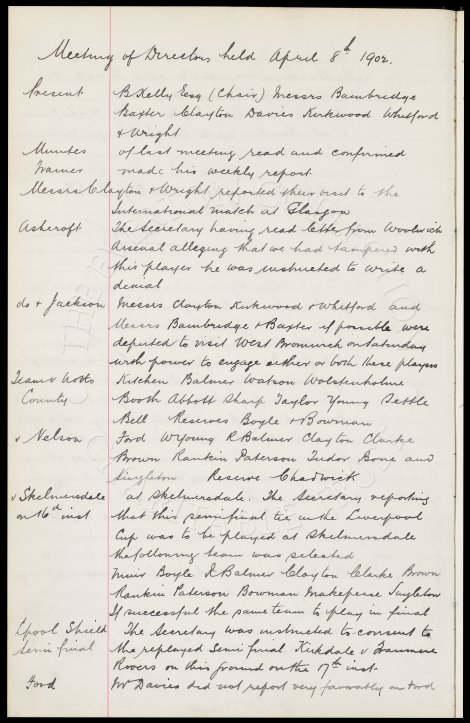 Meeting of Directors held April 8th 1902.
Present B Kelly Esq (Chair) Messrs Bambridge
Baxter Clayton Davies Kirkwood Whitford
& Wright
Minutes of last meeting read and confirmed
Trainer made his weekly report
Messrs Clayton & Wright reported their visit to the
International match at Glasgow
Ashcroft The Secretary having read letter from Woolwich
Arsenal alleging that we had tampered with
this player he was instructed to write a
denial
do & Jackson Messrs Clayton Kirkwood & Whitford and
Messrs Bambridge & Baxter if possible were
deputed to visit West Bromwich on Saturday
with power to engage either or both these players
Team v Notts Kitchen Balmer Watson Wolstenholme
County Booth Abbott Sharp Taylor Young Settle
Bell Reserves Boyle & Bowman
v Nelson Ford W Young R Balmer Clayton Clarke
Brown Rankin Paterson Tudor Bone and
Singleton Reserve Chadwick
v Skelmersdale at Skelmersdale. The Secretary reporting
on 16th inst that this semifinal tie in the Liverpool
Cup was to be played at Skelmersdale
the following team was selected
Muir Boyle R Balmer Clayton Clarke Brown
Rankin Paterson Bowman Makepeace Singleton
If successful the same team to play in final
Lpool Shield The Secretary was instructed to consent to
Semi final the replayed Semi final Kirkdale v Tranmere
Rovers on this ground on the 17th inst.
Ford Mr Davies did not report very favorably on Ford